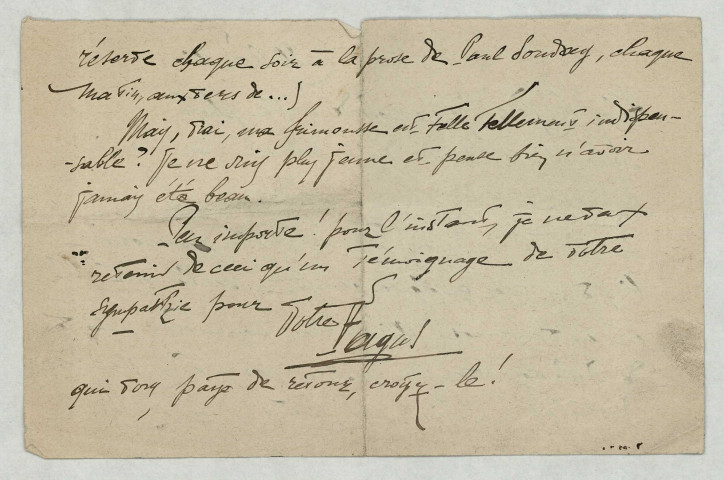 réserve chaque soir à la prose de Paul Souday, chaque
matin, aux vers de...)
Mais, vrai, ma frimousse est-elle tellement indispen-
-sable? Je ne suis plus jeune et pense bien n'avoir
jamais été beau.
Peu importe! pour l'instant, je ne veux
retenir de ceci qu'un témoignage de votre
sympathie pour
Votre Fagus
qui vous paye de retour, croyez-le!